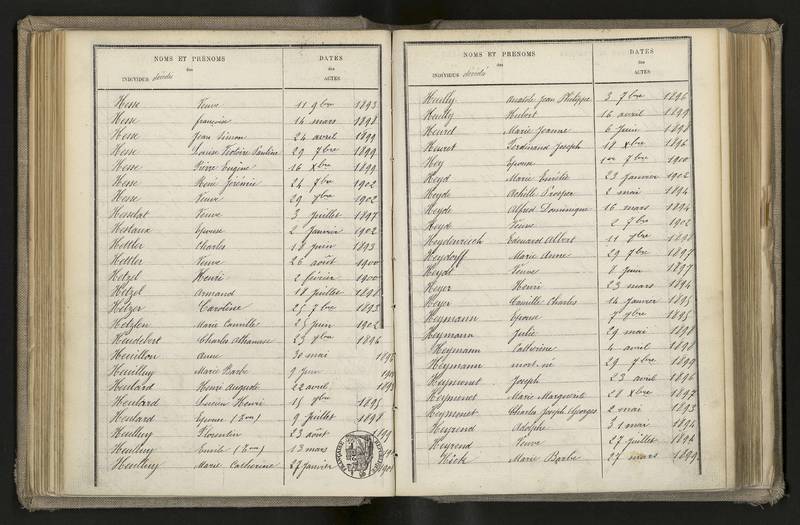 NOMS ET PRÉNOMS
des
INDIVIDUS décédés
DATES
des
ACTES
Hesse Veuve 11 9bre 1893
Hesse françoise 14 mars 1898
Hesse Jean Simon 24 avril 1899
Hesse Louise Victoire Pauline 29 7bre 1899
Hesse Pierre Eugène 16 Xbre 1899
Hesse René Jérémie 24 7bre 1902
Hesse Veuve 29 1902
Veuve 3 Juillet 1897
Hestaux Epouse 2 Janvier 1902
Hettler Charles 18 Juin 1893
Hettler Veuve 26 août 1900
Hetzel Henri 2 février 1900
Hetzel Armand 18 Juillet 1898
Hetzer Caroline 25 7bre 1893
Marie Camille 25 Juin 1902
Heudebert Charles Athanase 23 1896
Heuillon Anne 30 mai
Marie Barbe 9 Juin
Heulard Henri Auguste 22 avril
Heulard Lucien Henri 15 1895
Heulard Epouse 9 Juillet 1898
Heulluy Florentin 23 août
Heulluy Emile 13 mars
Heulluy Marie Catherine 27 Janvier
NOMS ET PRÉNOMS
des
INDIVIDUS décédés
DATES
des
ACTES
Heully Anatole Jean Philippe 3 7bre 1896
Heully Hubert 16 avril 1899
Heurel Marie Jeanne 6 Juin 1898
Heuret Ferdinand Joseph 18 Xbre 1896
Hey Epouse 1er 7bre 1900
Heyd Marie Emélie 23 Janvier 1902
Heyde Achille Prosper 2 mai 1894
Heyde Alfred Dominique 16 mars 1894
Heyde Veuve 2 7bre 1902
Heydenreich Edouard Albert 11 1898
Heydorff Marie Anne 29 7bre 1897
Heydt Veuve 8 Juin 1897
Heyer Henri 23 mars 1894
Heyer Camille Charles 14 Janvier 1895
Heymann Epouse 7 1895
Heymann Julie 29 mai 1898
Heymann Catherine 4 avril 1898
Heymann mort-né 29 1899
Heymonet Joseph 23 avril 1896
Heymonet Marie Marguerite 28 Xbre 1897
Heymonet Charles Joseph Georges 2 mai 1893
Heyrend Adolphe 31 mai 1894
Heyrend Veuve 27 Juillet 1894
Hick Marie Barbe 27 mars 1899